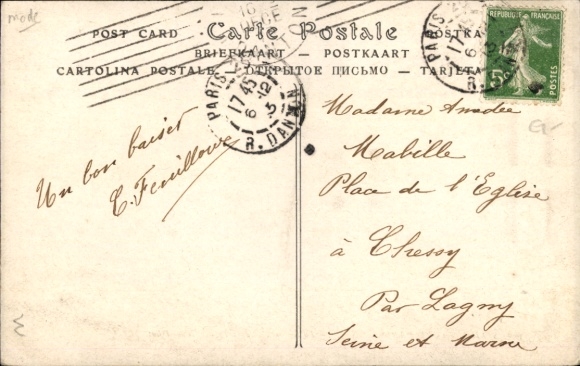 mode
POST CARD — Carte Postale — POSTKARTE
BRIEFKAART — POSTKAART
CARTOLINA POSTALE — ОТКРЫТОЕ ПИСЬМО — TARJETA
REPUBLIQUE FRANÇAISE
5c
POSTES
PARIS
17 45
6 - 12
R. DANTON
PARIS
17
6
R.
Un bon baiser
Madame Amédée
Mabille
Place de l'Eglise
à Chessy
Par Lagny
Seine et Marne